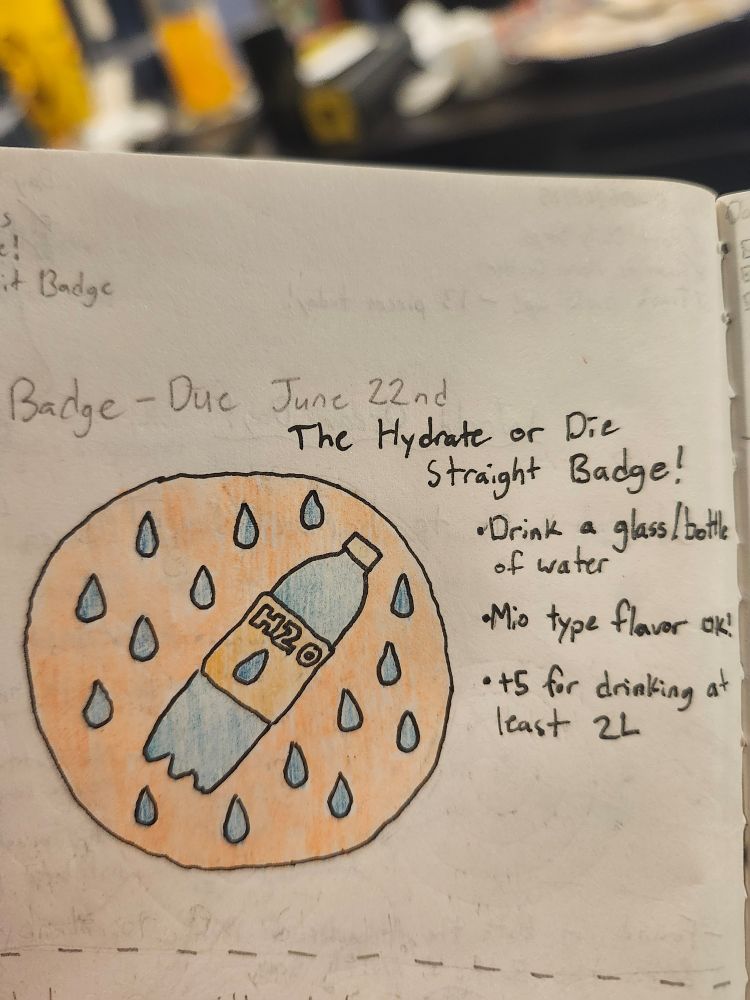 s
e!
it Badge
Badge - Due June 22nd
The Hydrate or Die
Straight Badge!
•Drink a glass/bottle
of water
•Mio type flavor ok!
•+5 for drinking at
least 2L
H2O